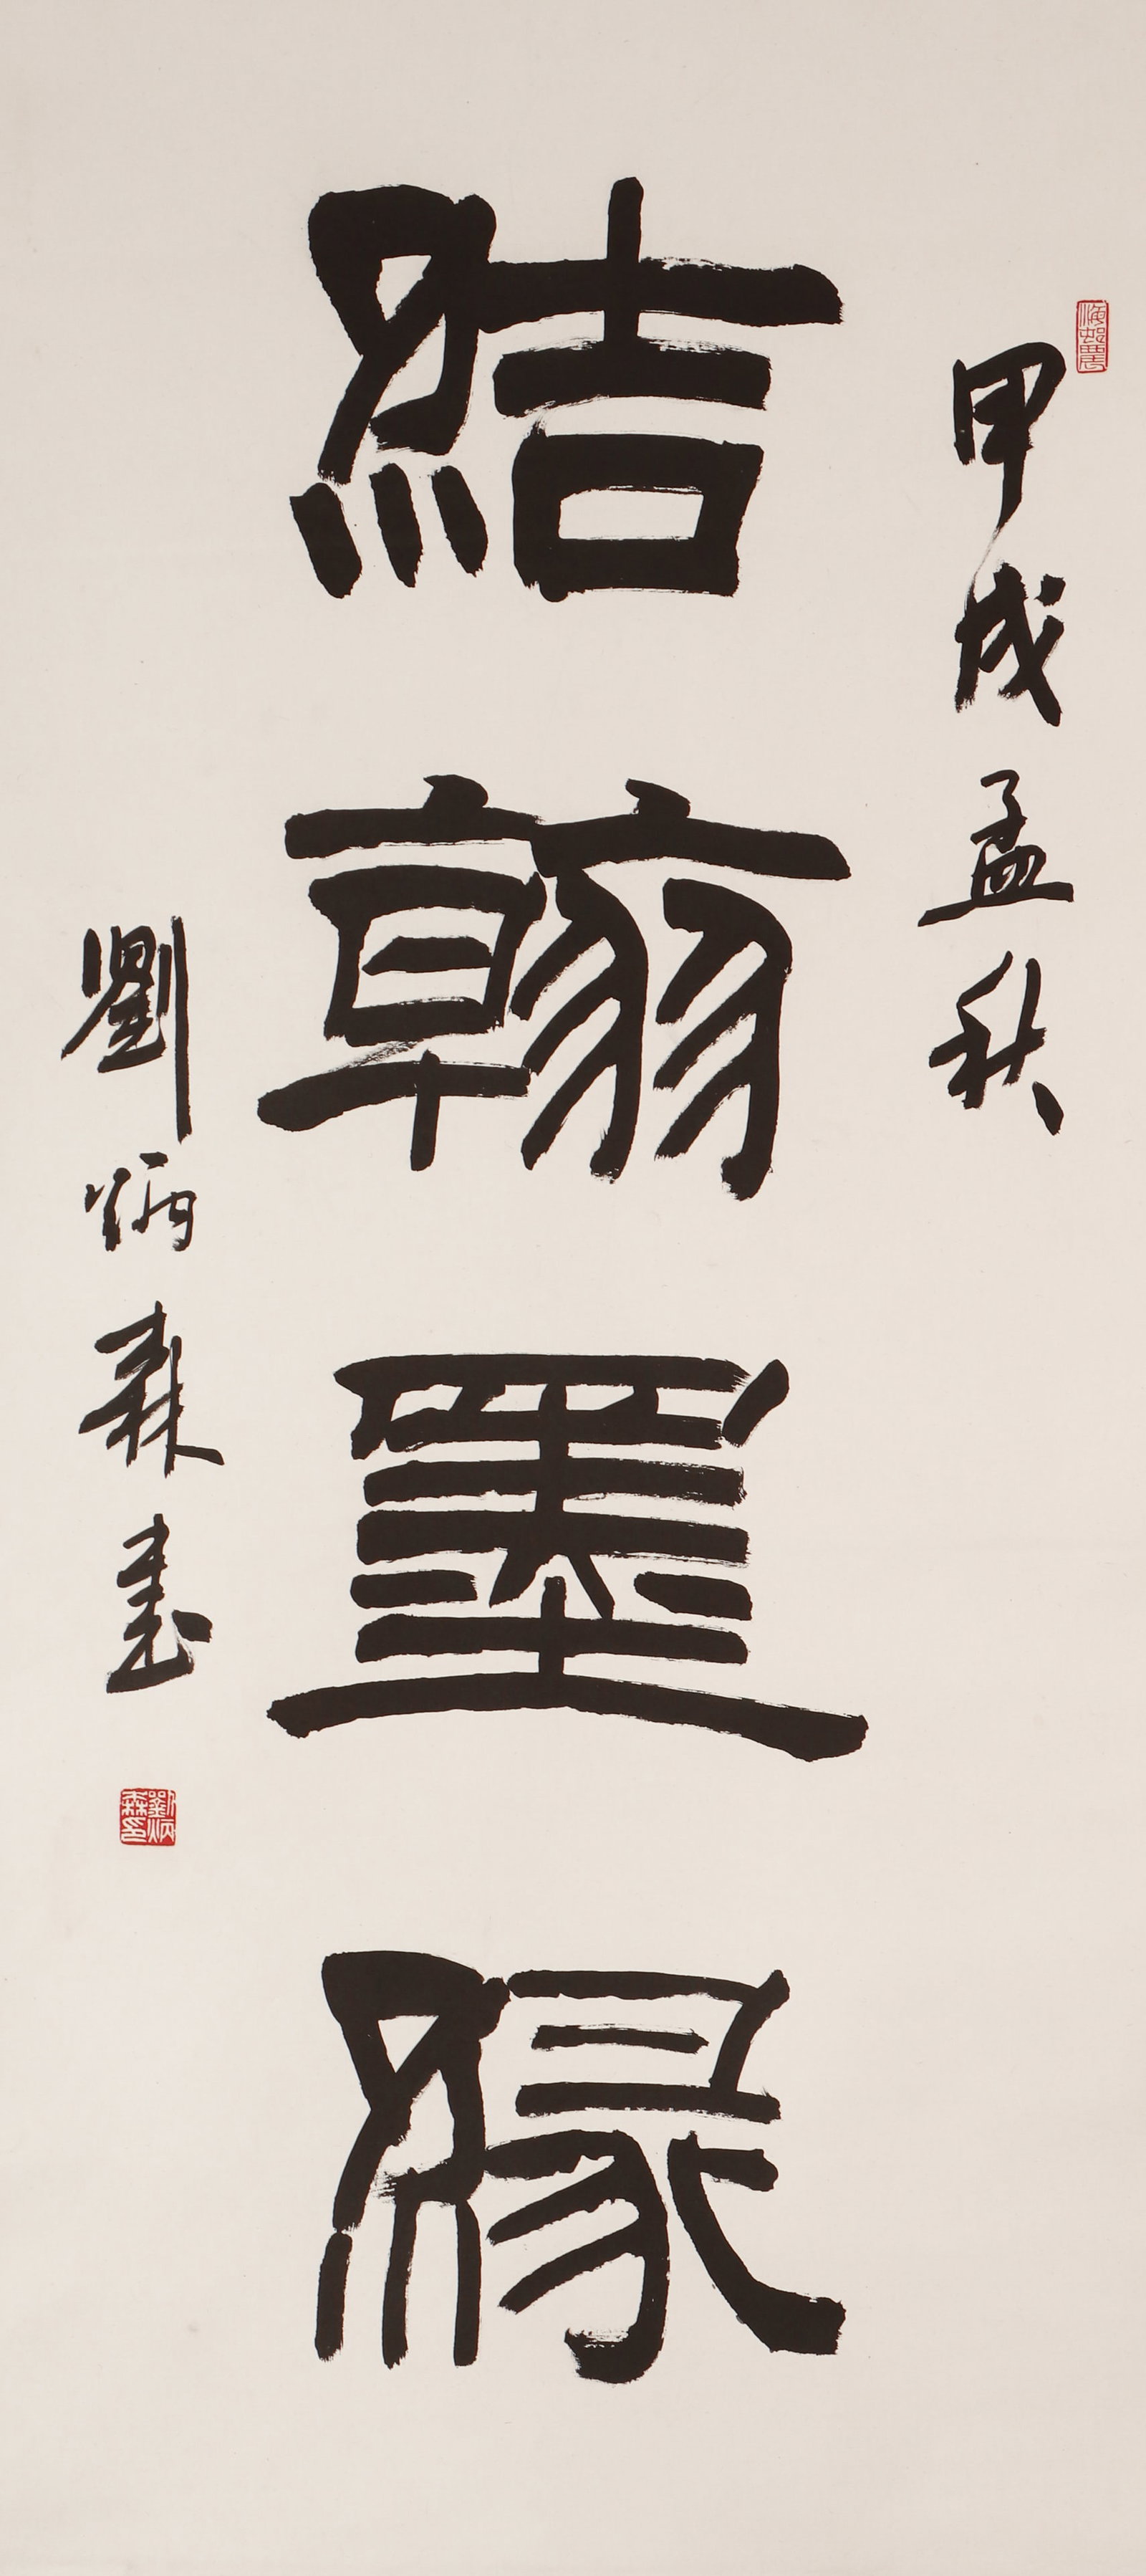 甲戌孟秋
結翰墨緣
劉炳森書
劉炳森印